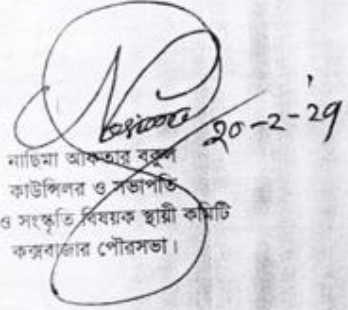 নাছিমা আকতার বকুল
কাউন্সিলর ও সভাপতি
ও সংস্কৃতি বিষয়ক স্থায়ী কমিটি
কক্সবাজার পৌরসভা।